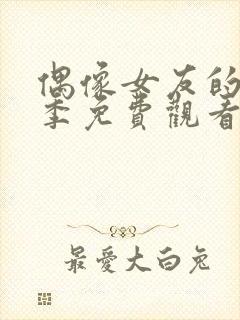 偶像女友的
季免費觀看
最愛大白兔